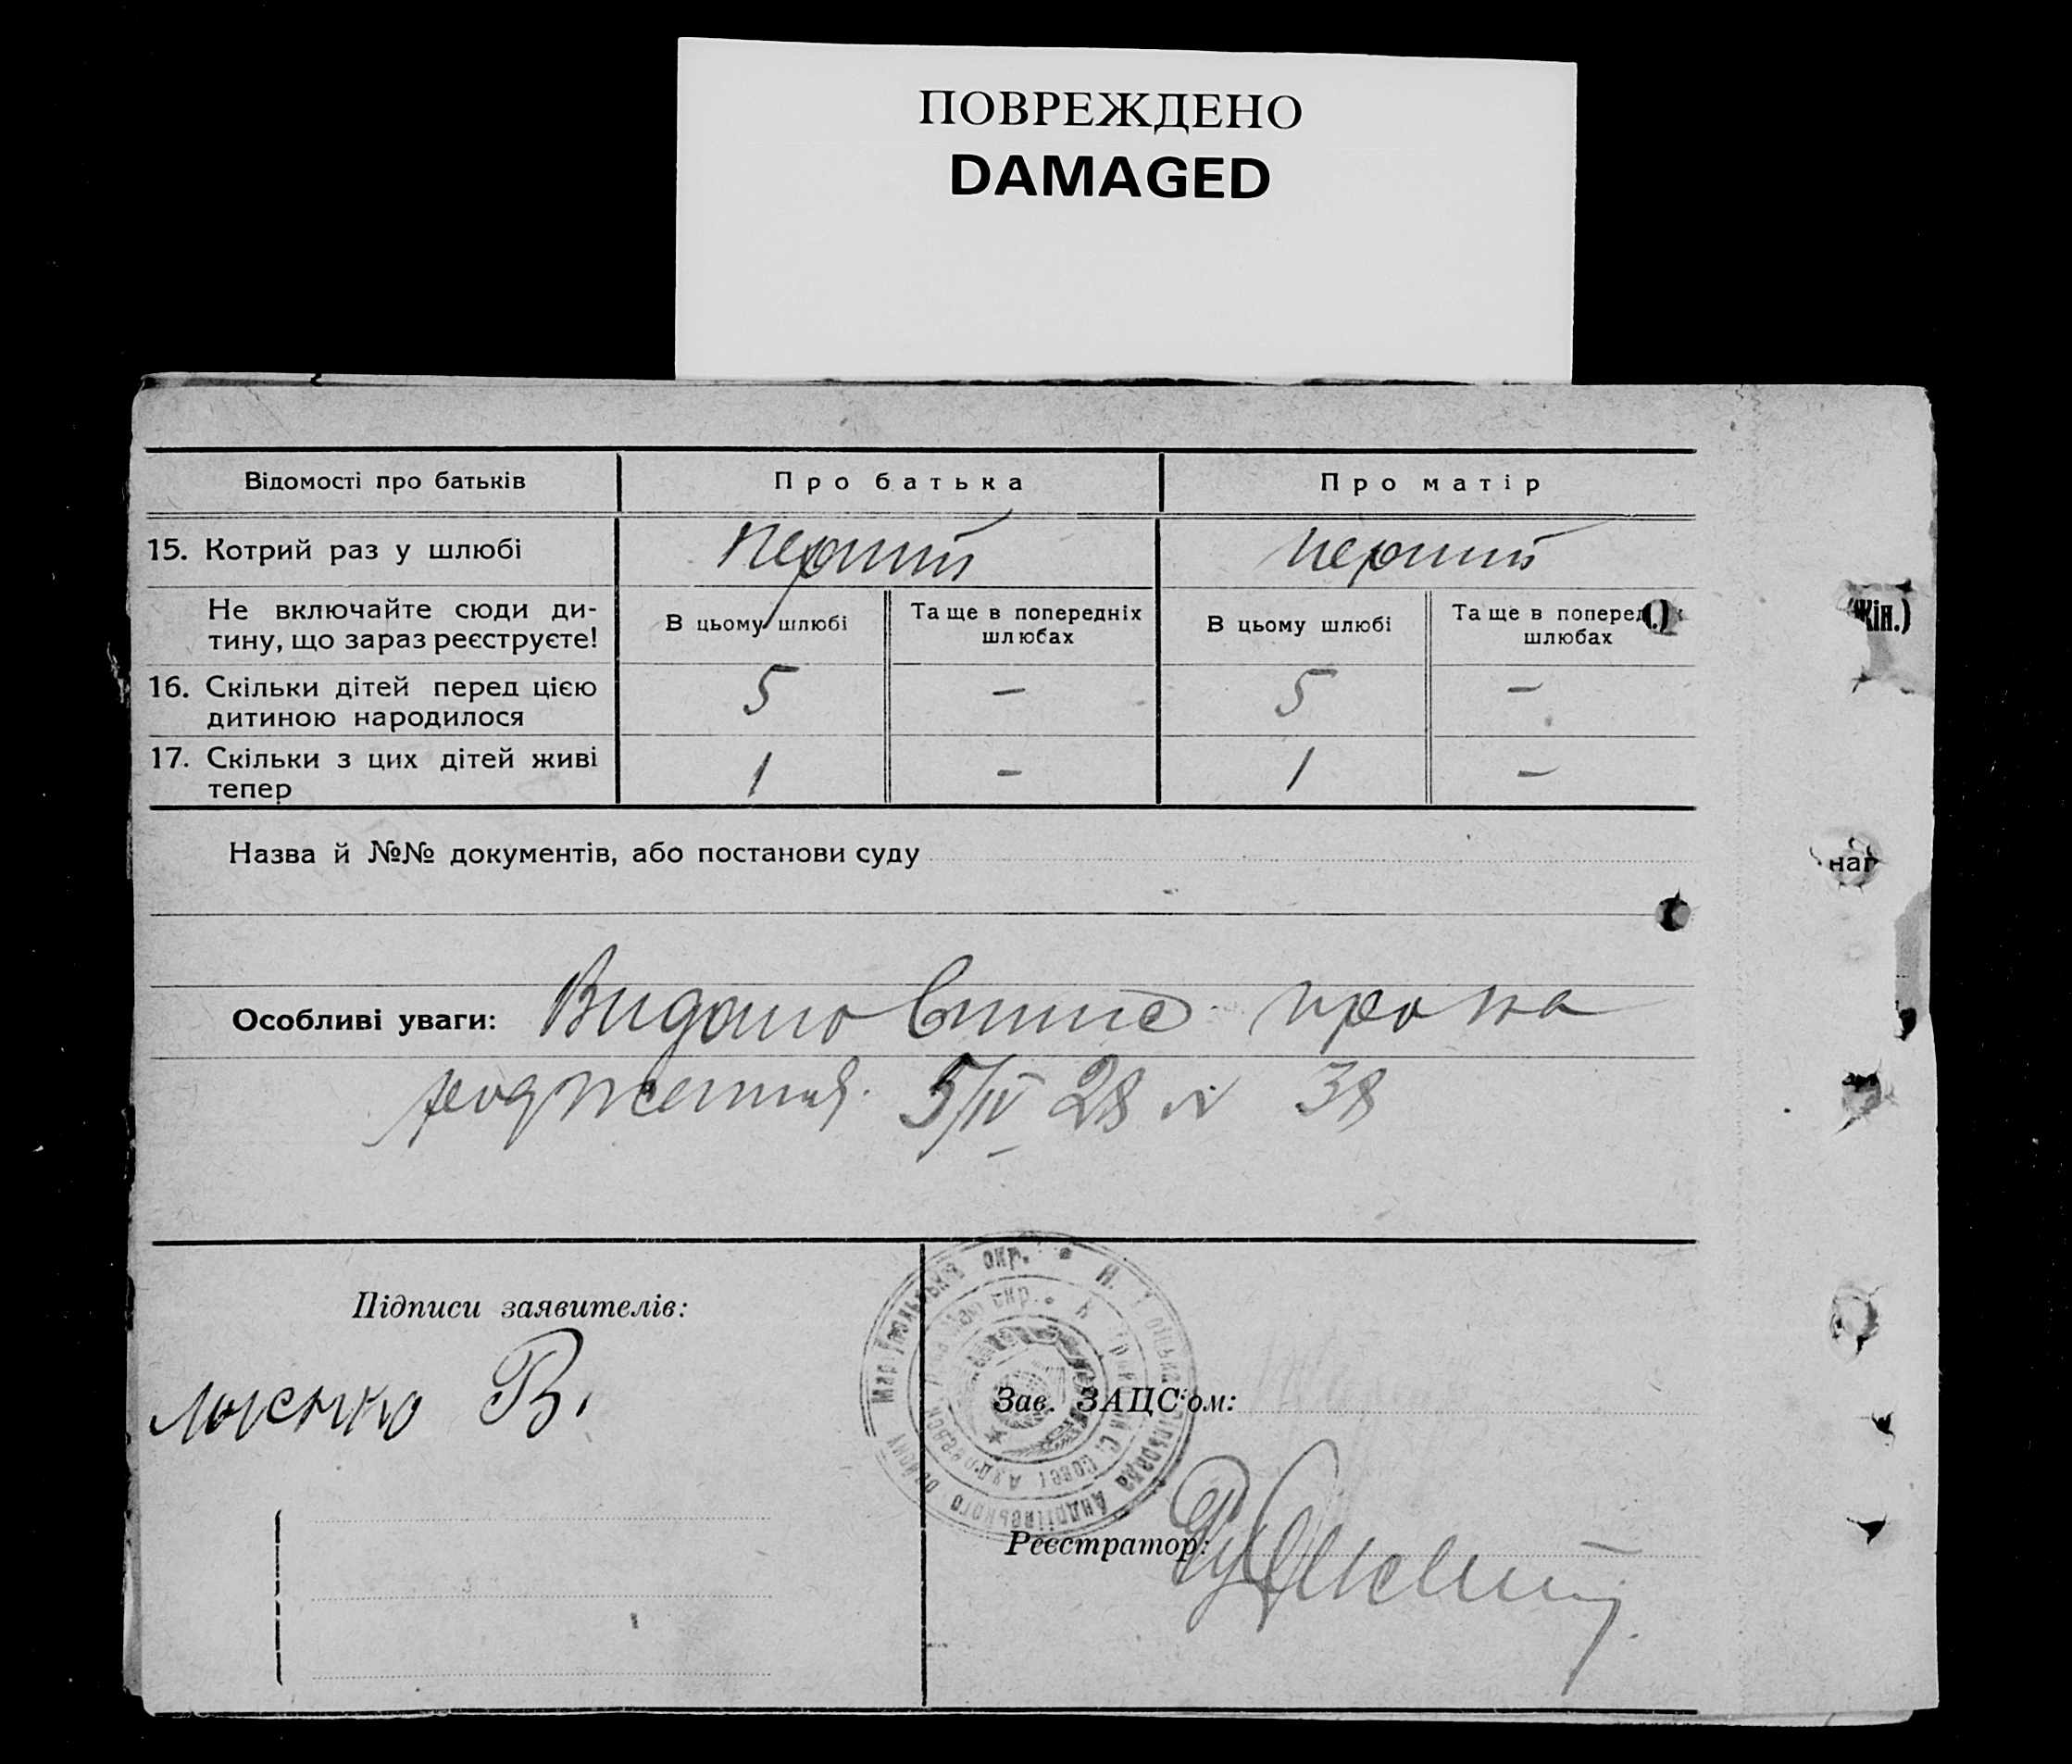 ПОВРЕЖДЕНО
DAMAGED
Відомості про батьків
Про батька
Про матір
15. Котрий раз у шлюбі
перший
перший
Не включайте сюди ди-
тину, що зараз реєструєте!
В цьому шлюбі
Та ще в попередніх
шлюбах
В цьому шлюбі
Та ще в поперед
шлюбах
.)
Жін.)
16. Скільки дітей перед цією
дитиною народилося
5
—
5
—
17. Скільки з цих дітей живі
тепер
1
—
1
—
Назва й №№ документів, або постанови суду
наг
Особливі уваги: Видано Випис про на
родження. 5/IV 28 № 38
Підписи заявителів:
В.
Маріупольська окр.
Андріївського району
Зав. ЗАЦС'ом:
Реєстратор: